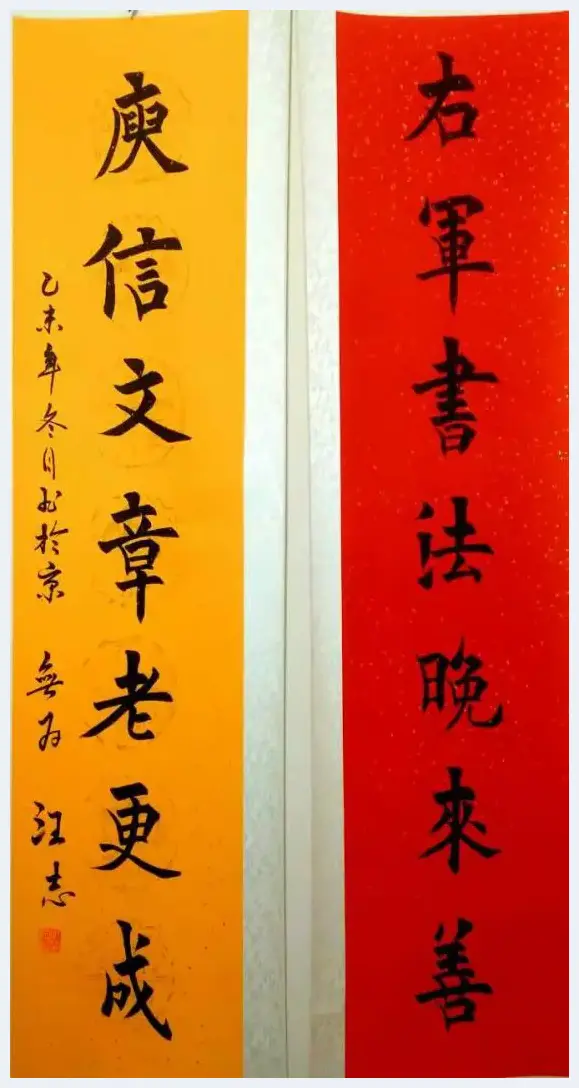 右軍書法晚來善
庾信文章老更成
乙未年冬月书於京 無為 汪志